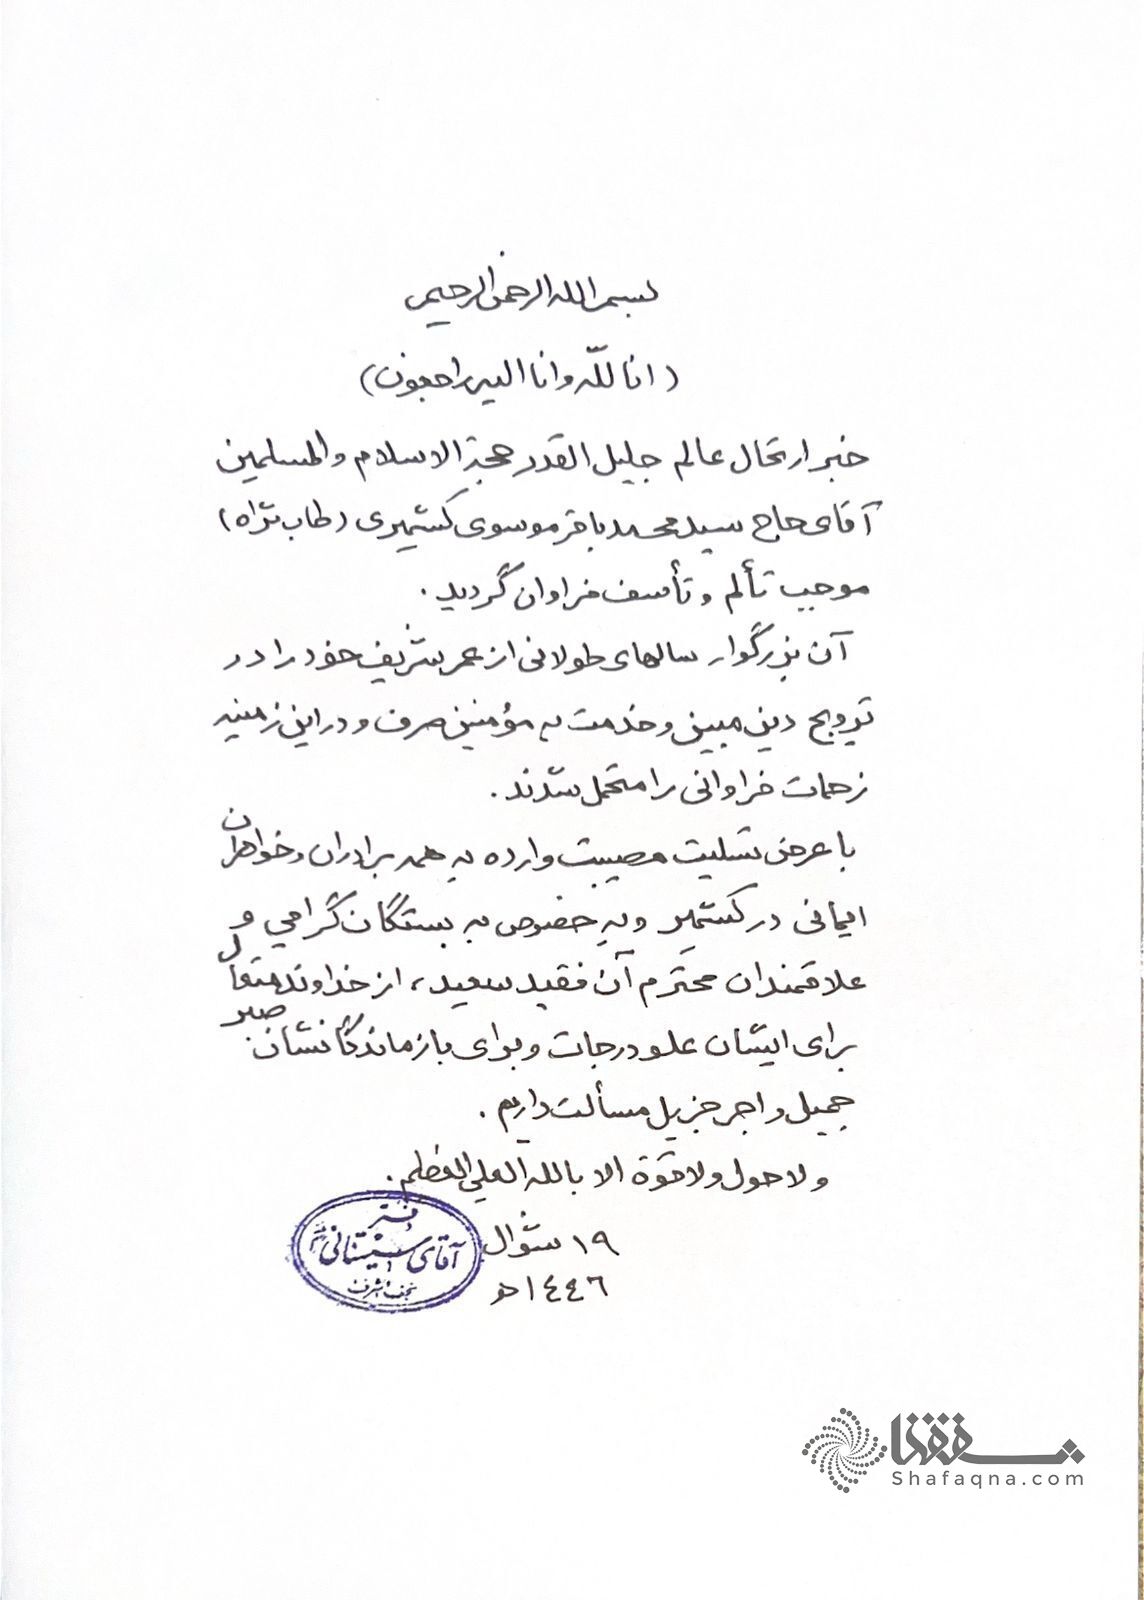 بسم الله الرحمن الرحیم
(انا لله وانا الیه راجعون)
خبر ارتحال عالم جلیل القدر حجة الاسلام والمسلمین
آقای حاج سید محمد باقر موسوی کشمیری (طاب ثراه)
موجب تألم و تأسف فراوان گردید.
آن بزرگوار سالهای طولانی از عمر شریف خود را در
ترویج دین مبین و خدمت به مؤمنین صرف و در این زمینه
زحمات فراوانی را متحمل شدند.
با عرض تسلیت مصیبت وارده به همه برادران و خواهران
ایمانی در کشمیر و به خصوص به بستگان گرامی و
علاقمندان محترم آن فقید سعید، از خداوند متعال
برای ایشان علو درجات و برای بازماندگانشان صبر
جمیل و اجر جزیل مسألت داریم.
ولا حول ولا قوة الا بالله العلی العظیم.
۱۹ شوال
١٤٤٦ هـ
دفتر
آقای سیستانی
نجف اشرف
شفقنا
Shafaqna.com